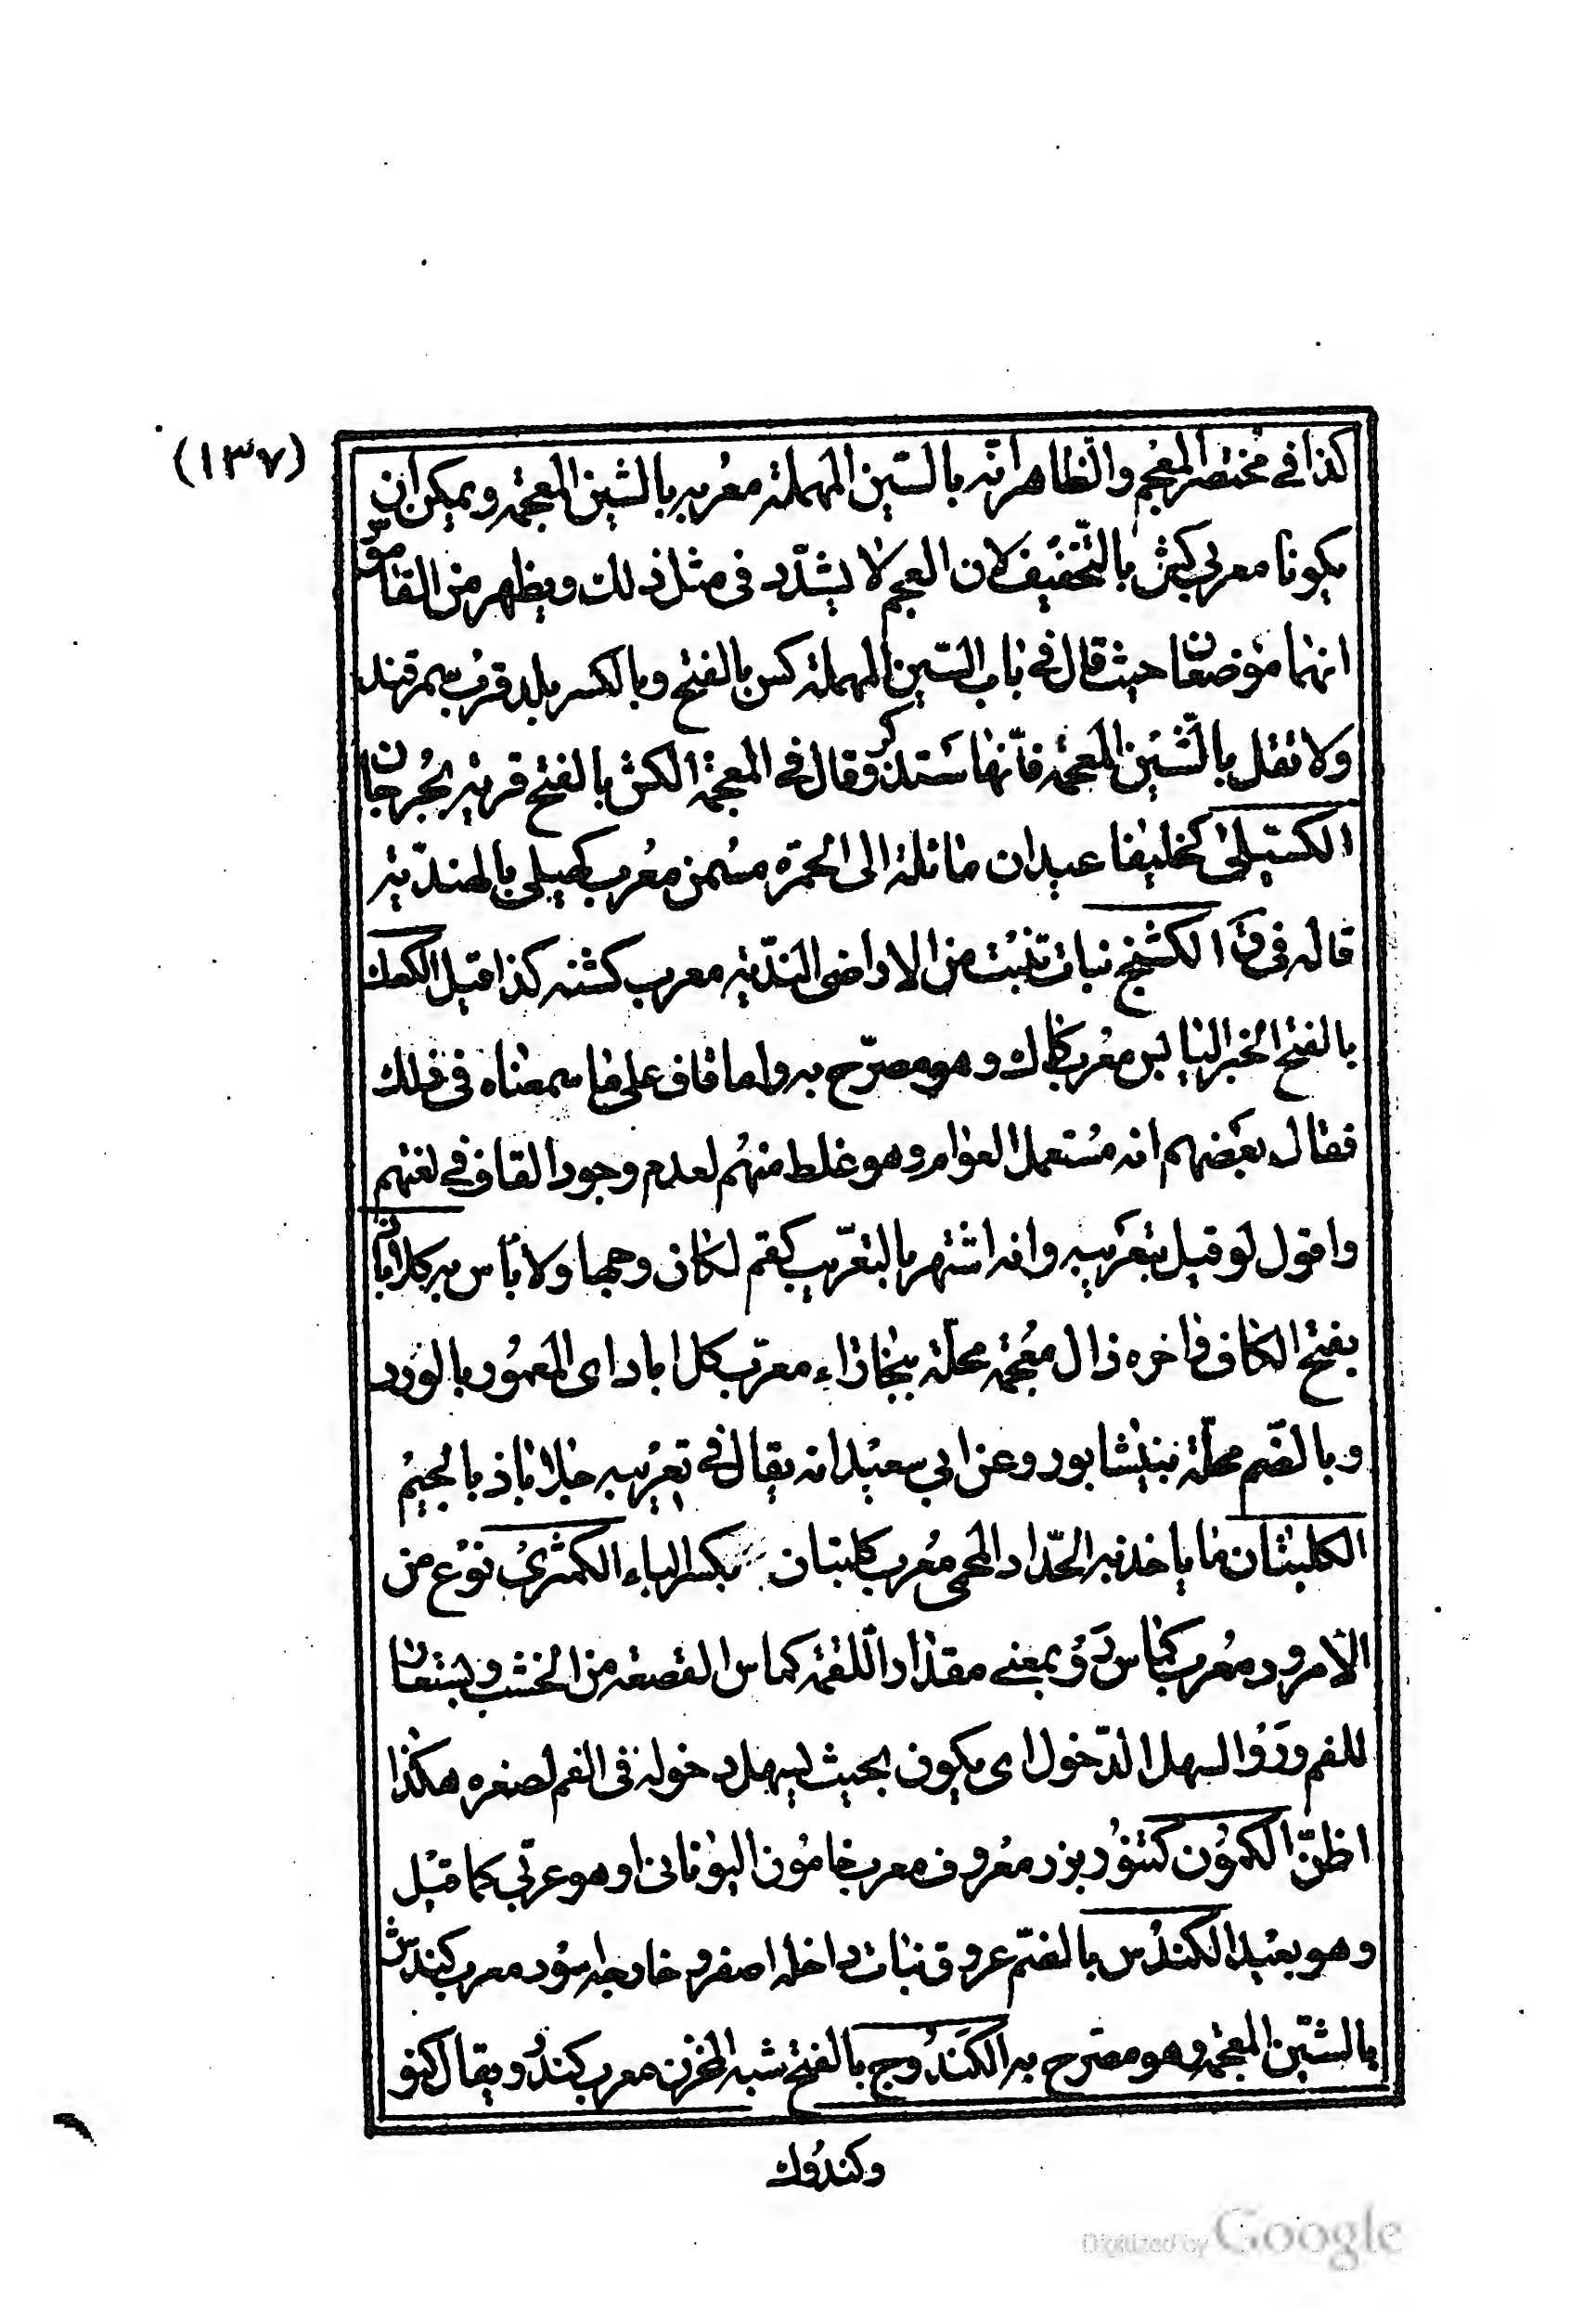 (١٣٧)
كذا في مختصر المعجم والظاهر انّه بالسّين المهملة معربه بالشين المعجمة ويمكن ان
يكونا معربي كش بالتّخفيف لان العجم لا يشدّد في مثل ذلك ويظهر من القاموس
انهما موضعان حيث قال في باب السّين المهملة كس بالفتح وبالكسر بلد قرب سمرقند
ولا تقل بالشّين المعجمة فانّها ستذكر وقال في المعجمة الكش بالفتح قرية بجرجان
الكسيلى كخليفا عيدان مائلة الى الحمرة مسمن معرب كهيلى بالهندية
قاله في ق الكشنج نبات تنبت من الاراضى النديّة معرب كشنه كذا قيل الكعك
بالفتح الخبز اليابس معرب كاك وهو مصرّح به واما قاق على ما سمعناه في فلك
فقال بعضهم انه مستعمل العوام وهو غلط منهم لعدم وجود القاف في لغتهم
واقول لو قيل بتعريبه وانه اشتهر بالتعريب كقم لكان وجها ولا بأس به كلاباذ
بفتح الكاف واخره ذال معجمة محلّة ببخاراء معرّب كل اباد اى المعمور بالورد
وبالضّم محلّة بنيشابور وعن ابي سعيد انه يقال في تعريبه جلاباذ بالجيم
الكلبتان ما ياخذ به الحدّاد المحمى معرب كلبتان بكسر الباء الكمثرى نوع من
الامرود معرب كماس رو بمعنى مقدار اللقمة كماس القصعة من الخشب ويستعان
للفم ورو السهل الدّخول اى يكون بحيث ليسهل دخوله في الفم لصغره هكذا
اظنّ الكمّون كتنّور بزر معروف معرب خامون اليونانى او هو عربي كما قيل
وهو بعيد الكندس بالضّم عروق نبات داخله اصفر وخارجه اسود معرب كندش
بالشّين المعجمة وهو مصرّح به الكندوج بالفتح شبه المخزن معرب كندو ويقال كنو
وكندوك
Digitized by Google